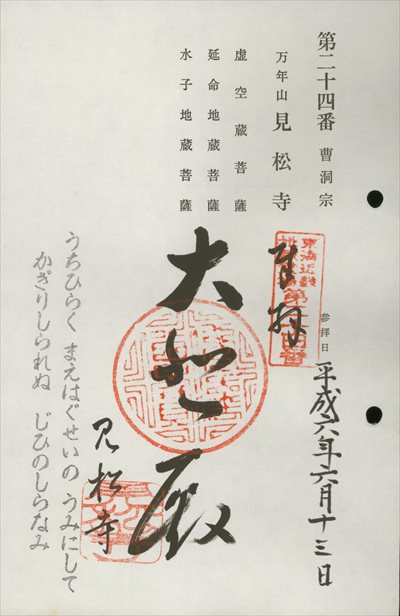 第二十四番 曹洞宗
万年山 見松寺
虚空蔵菩薩
延命地蔵菩薩
水子地蔵菩薩
奉拝
参拝日
平成六年六月十三日
大悲殿
見松寺
うちひらく まえはぐせいの うみにして
かぎりしられぬ じひのしらなみ